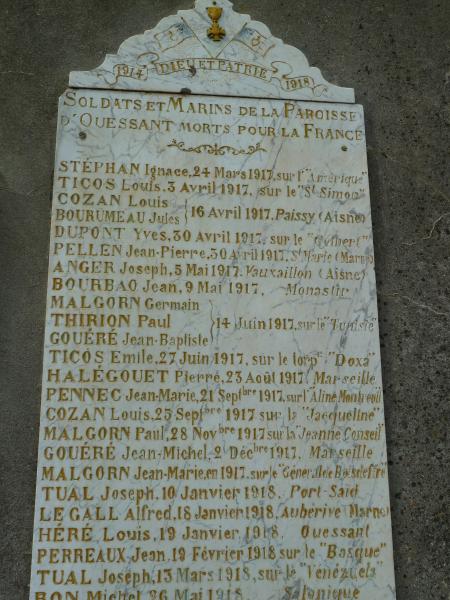 1914 DIEU ET PATRIE 1918
SOLDATS ET MARINS DE LA PAROISSE
D'OUESSANT MORTS POUR LA FRANCE
STÉPHAN Ignace, 24 Mars 1917, sur l'"Amérique"
TICOS Louis, 3 Avril 1917, sur le "St Simon"
COZAN Louis
BOURUMEAU Jules } 16 Avril 1917, Paissy (Aisne)
DUPONT Yves, 30 Avril 1917, sur le
PELLEN Jean-Pierre, 30 Avril 1917, Ste Marie (Marne)
ANGER Joseph, 5 Mai 1917, Vauxaillon (Aisne)
BOURBAO Jean, 9 Mai 1917, Monastir
MALGORN Germain
THIRION Paul } 14 Juin 1917, sur le "Tunisie"
GOUÉRÉ Jean-Baptiste
TICOS Emile, 27 Juin 1917, sur le torpr "Doxa"
HALÉGOUET Pierre, 23 Août 1917, Marseille
PENNEC Jean-Marie, 21 Septbre 1917, sur l'"Aline Montreuil"
COZAN Louis, 25 Septbre 1917 sur la "Jacqueline"
MALGORN Paul, 28 Novbre 1917 sur la "Jeanne Conseil"
GOUÉRÉ Jean-Michel, 2 Décbre 1917, Marseille
MALGORN Jean-Marie, en 1917, sur le "Général de Boisdeffre"
TUAL Joseph, 10 Janvier 1918, Port-Saïd
LE GALL Alfred, 18 Janvier 1918, Aubérive (Marne)
HÉRÉ Louis, 19 Janvier 1918, Ouessant
PERREAUX Jean, 19 Février 1918 sur le "Basque"
TUAL Joseph, 13 Mars 1918, sur le "Vénézuela"
BON Michel, 26 Mai 1918, Salonique